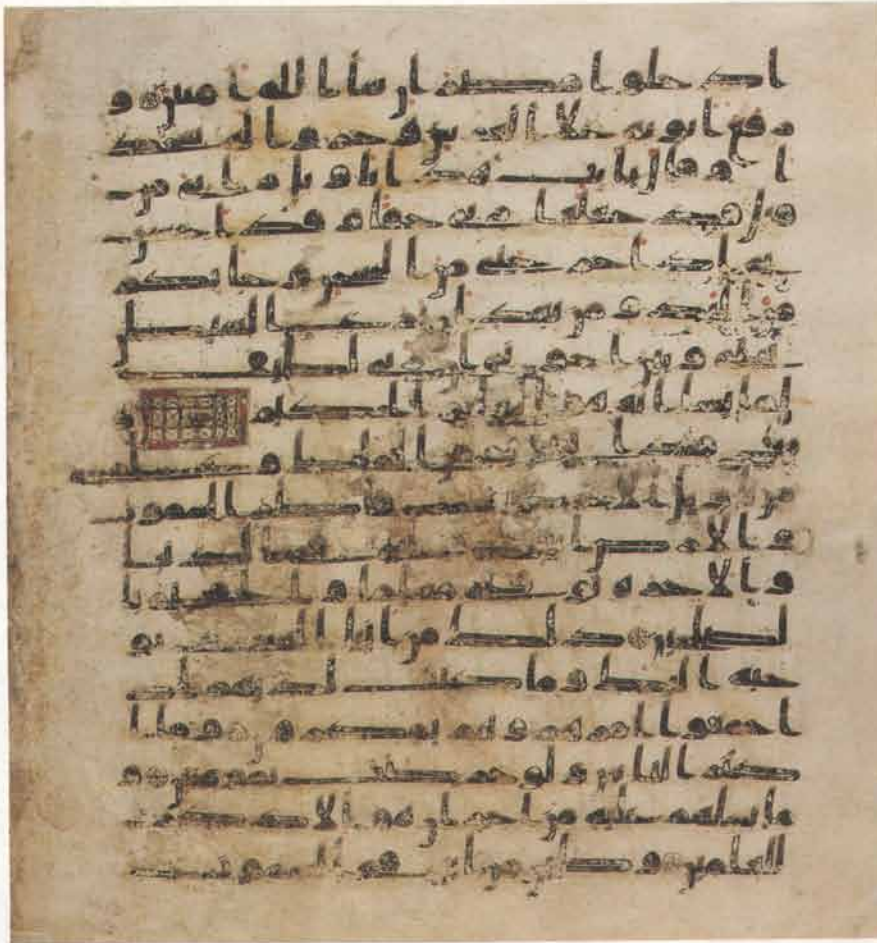 ادخلوا مصر ان شا الله امنين و
رفع ابويه علا العرش وخروا له سجد
ا وقال يابت هذا تاويل ريي من
قبل قد جعلها ربي حقا وقد احسن
بي اذ اخرجني من السجن وجا بكم
من البدو من بعد ان نزغ الشيطن
بيني وبين اخوتي ان ربي لطيف
لما يشا انه هو العليم الحكيم
رب قد اتيتني من الملك وعلمتني
من تاويل الاحاديث فاطر السموت
والارض انت ولي في الدنيا
والاخرة توفني مسلما والحقني با
لصلحين ذلك من انبا الغيب نو
حيه اليك وما كنت لديهم اذ
اجمعوا امرهم وهم يمكرون وما ا
كثر الناس ولو حرصت بمومنين و
ما تسلهم عليه من اجر ان هو الا ذكر
للعلمين وكاين من اية في السموت